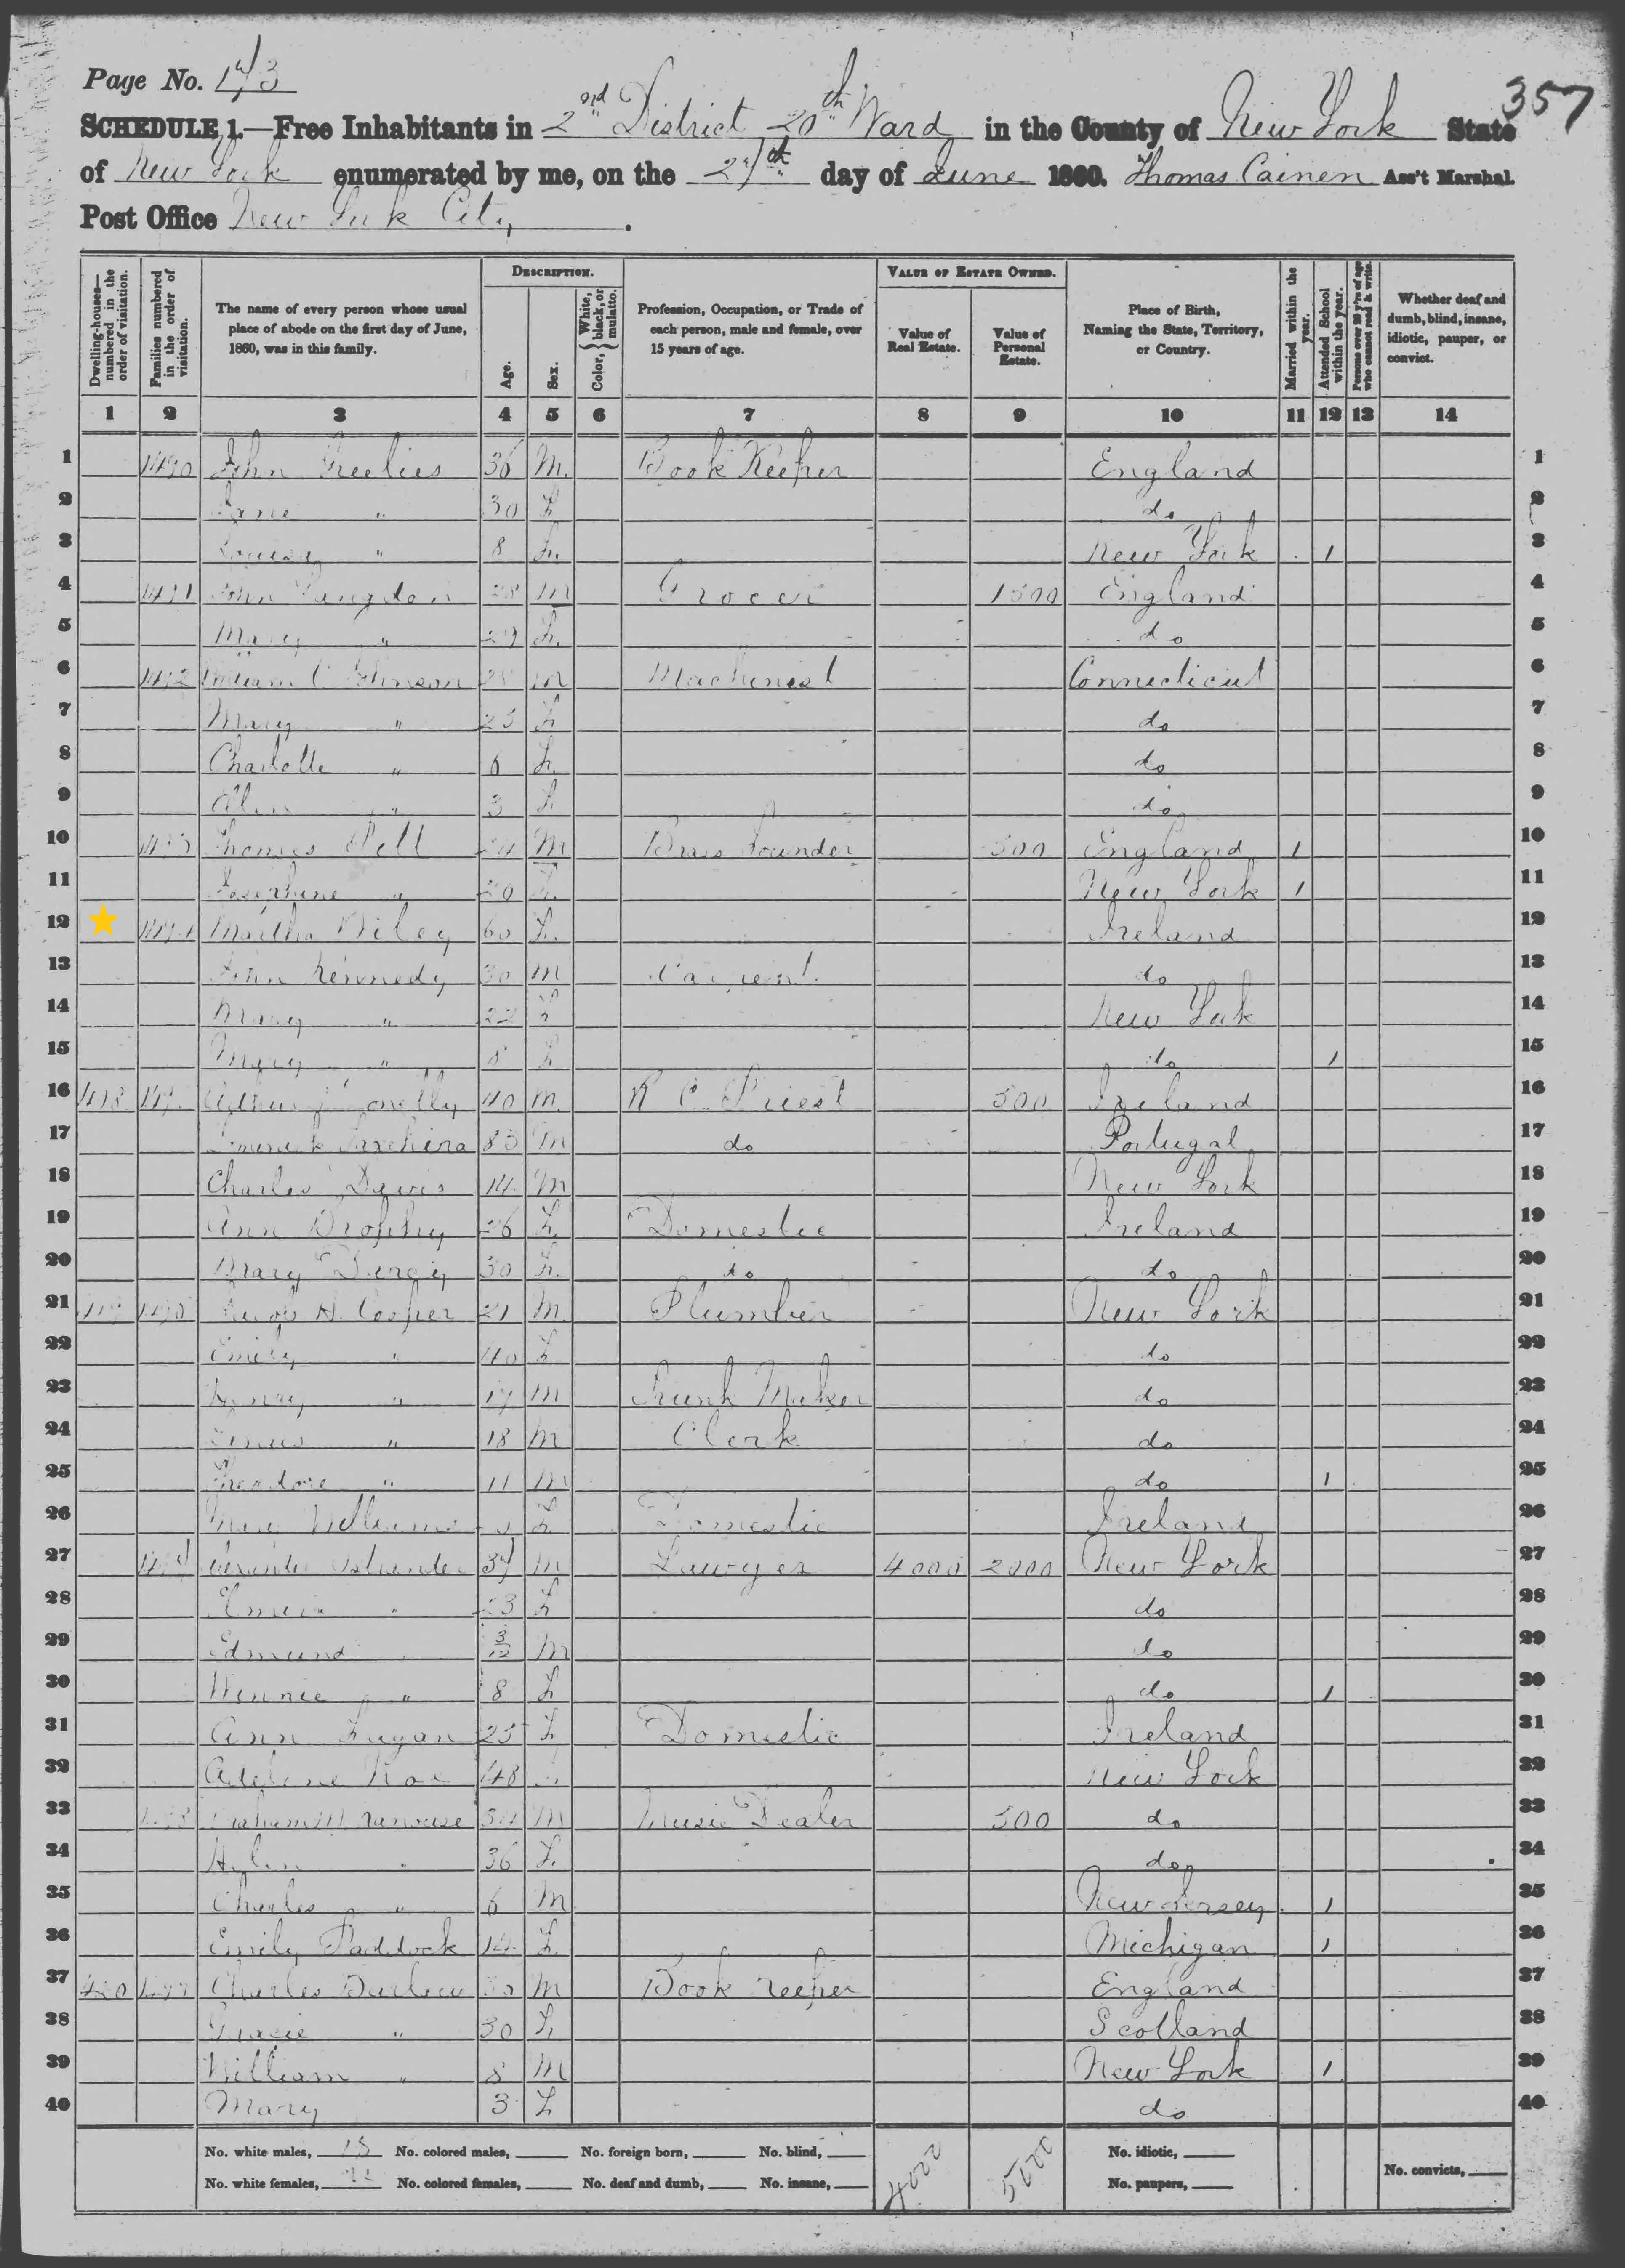 Page No. 173
357
SCHEDULE 1.—Free Inhabitants in 2nd District 20th Ward in the County of New York State
of New York enumerated by me, on the 27th day of June 1860. Thomas Cainen Ass't Marshal.
Post Office New York City.
Dwelling-houses—numbered in the order of visitation.
Families numbered in the order of visitation.
The name of every person whose usual place of abode on the first day of June, 1860, was in this family.
DESCRIPTION.
Age.
Sex.
Color, {White, black, or mulatto.
Profession, Occupation, or Trade of each person, male and female, over 15 years of age.
VALUE OF ESTATE OWNED.
Value of Real Estate.
Value of Personal Estate.
Place of Birth, Naming the State, Territory, or Country.
Married within the year.
Attended School within the year.
Persons over 20 y'rs of age who cannot read & write.
Whether deaf and dumb, blind, insane, idiotic, pauper, or convict.
1 2 3 4 5 6 7 8 9 10 11 12 13 14
1 John 36 M. Book Keeper England 1
2 Jane " 30 F do 2
3 Louisa " 8 F. New York 1 3
4 John Langdon 28 M Grocer 1500 England 4
5 Mary " 29 F. do 5
6 William C Johnson M Machinest Connecticut 6
7 Mary " 25 F do 7
8 Charlotte " 6 F. do 8
9 " 3 F do 9
10 Thomas Pell 24 M Brass Founder 500 England 1 10
11 Josephine " 20 F. New York 1 11
12 Martha Wiley 60 F. Ireland 12
13 John Kennedy 30 M do 13
14 Mary " 22 F New York 14
15 Mary " 8 F do 1 15
16 418 40 M. R C Priest 500 Ireland 16
17 85 M do Portugal 17
18 Charles Davis 14 M New York 18
19 Ann Brophy 26 F. Domestic Ireland 19
20 Mary Darcy 30 F. do do 20
21 H. Cooper M. Plumber New York 21
22 Emily " 40 F do 22
23 Henry " 17 M Trunk Maker do 23
24 " 18 M Clerk do 24
25 Theodore " 11 M do 1 25
26 Mary Williams F Domestic Ireland 26
27 37 M Lawyer 4000 2000 New York 27
28 " 23 F do 28
29 Edmund 3/12 M do 29
30 Minnie " 8 F do 1 30
31 Ann Fagan 25 F Domestic Ireland 31
32 Adeline 48 New York 32
33 34 M Music Dealer 500 do 33
34 Helen " 36 F. do 34
35 Charles " 6 M New Jersey 1 35
36 Emily Paddock 14 F. Michigan 1 36
37 420 Charles M Book Keeper England 37
38 Gracie " 30 F. Scotland 38
39 William " 8 M New York 1 39
40 Mary 3 F do 40
No. white males, 18 No. colored males, No. foreign born, No. blind, 4000 5000 No. idiotic,
No. white females, 22 No. colored females, No. deaf and dumb, No. insane, No. paupers, No. convicts,